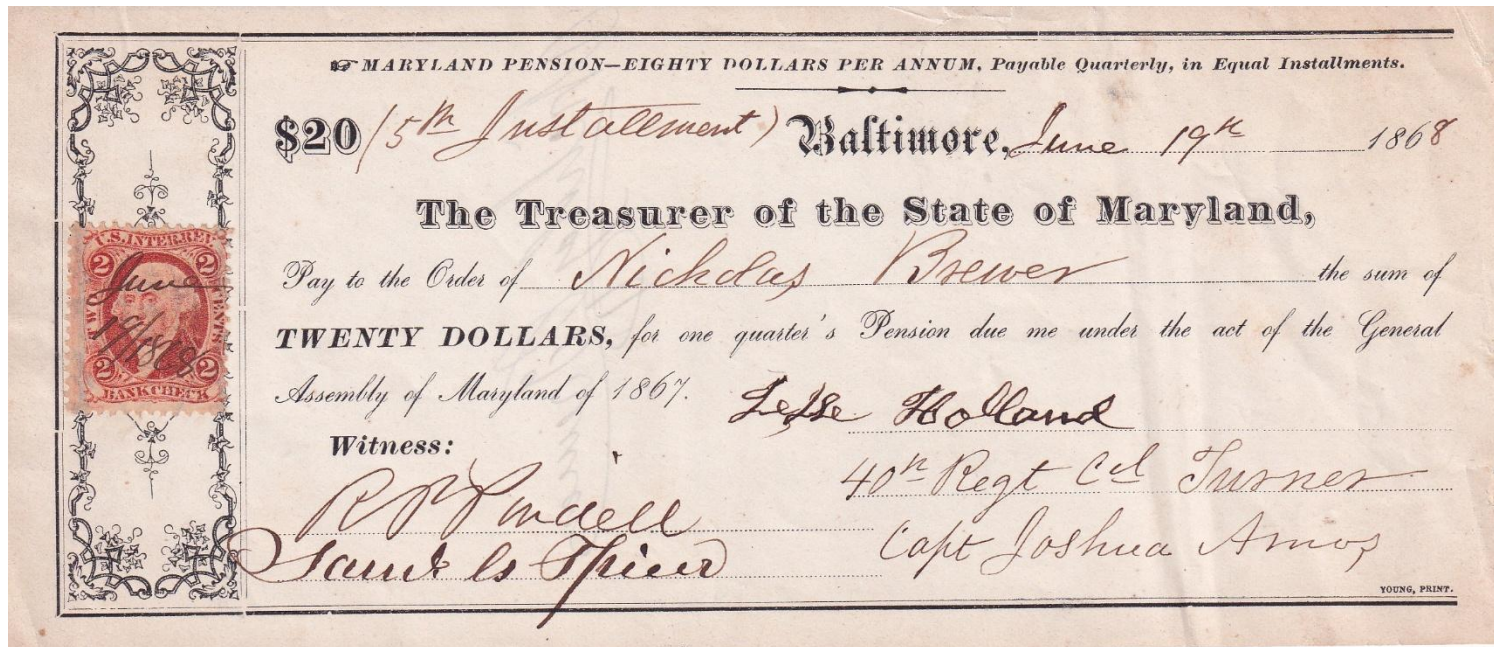 ☞ MARYLAND PENSION—EIGHTY DOLLARS PER ANNUM, Payable Quarterly, in Equal Installments.
$20 (5th Installment) Baltimore, June 19th 1868
The Treasurer of the State of Maryland,
Pay to the Order of Nicholas Brewer the sum of
TWENTY DOLLARS, for one quarter's Pension due me under the act of the General
Assembly of Maryland of 1867.
Jesse Holland
Witness:
40th Regt Col Turner
Capt Joshua Amos
YOUNG, PRINT.
U.S. INTER. REV.
2 2
June
19/1868
2 2
BANK CHECK